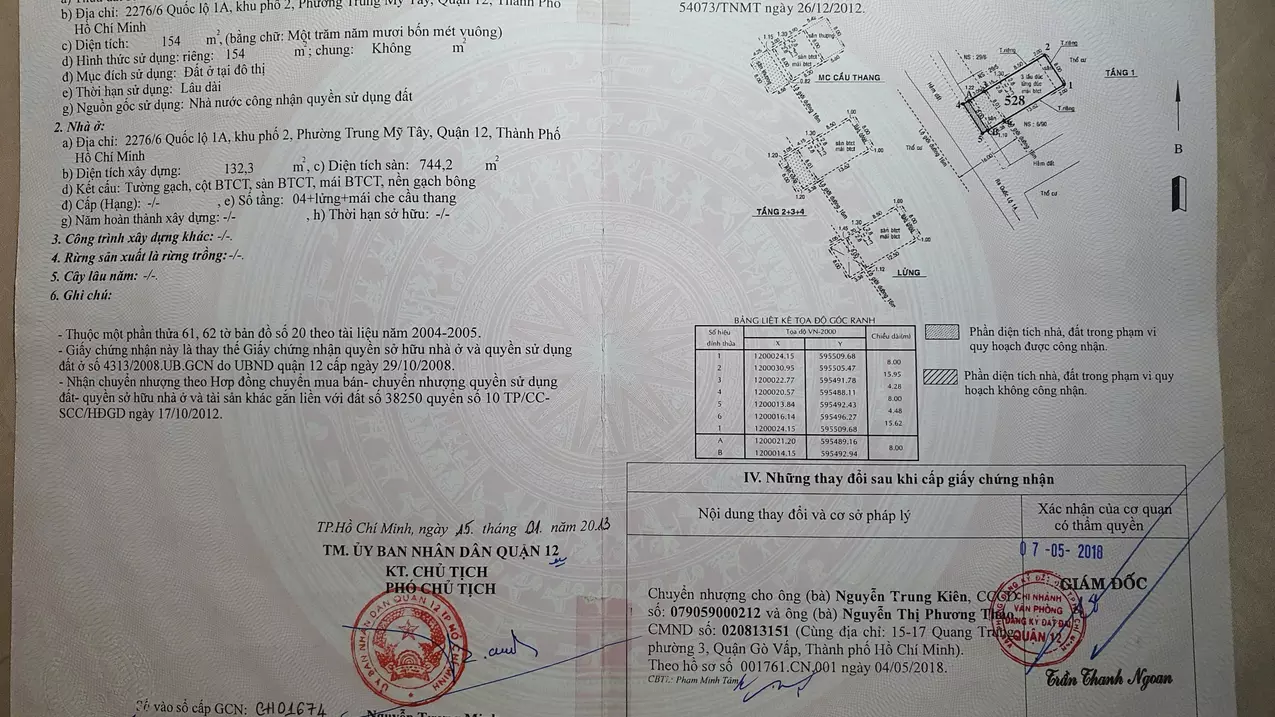 b) Địa chỉ: 2276/6 Quốc lộ 1A, khu phố 2, Phường Trung Mỹ Tây, Quận 12, Thành Phố
Hồ Chí Minh
c) Diện tích: 154 m², (bằng chữ: Một trăm năm mươi bốn mét vuông)
d) Hình thức sử dụng: riêng: 154 m²; chung: Không m²
đ) Mục đích sử dụng: Đất ở tại đô thị
e) Thời hạn sử dụng: Lâu dài
g) Nguồn gốc sử dụng: Nhà nước công nhận quyền sử dụng đất
2. Nhà ở:
a) Địa chỉ: 2276/6 Quốc lộ 1A, khu phố 2, Phường Trung Mỹ Tây, Quận 12, Thành Phố
Hồ Chí Minh
b) Diện tích xây dựng: 132,3 m², c) Diện tích sàn: 744,2 m²
d) Kết cấu: Tường gạch, cột BTCT, sàn BTCT, mái BTCT, nền gạch bông
đ) Cấp (Hạng): -/- , e) Số tầng: 04+lửng+mái che cầu thang
g) Năm hoàn thành xây dựng: -/- , h) Thời hạn sở hữu: -/-
3. Công trình xây dựng khác: -/-.
4. Rừng sản xuất là rừng trồng:-/-.
5. Cây lâu năm: -/-.
6. Ghi chú:
- Thuộc một phần thửa 61, 62 tờ bản đồ số 20 theo tài liệu năm 2004-2005.
- Giấy chứng nhận này là thay thế Giấy chứng nhận quyền sở hữu nhà ở và quyền sử dụng
đất ở số 4313/2008.UB.GCN do UBND quận 12 cấp ngày 29/10/2008.
- Nhận chuyển nhượng theo Hợp đồng chuyển mua bán- chuyển nhượng quyền sử dụng
đất- quyền sở hữu nhà ở và tài sản khác gắn liền với đất số 38250 quyển số 10 TP/CC-
SCC/HĐGD ngày 17/10/2012.
TP.Hồ Chí Minh, ngày 15 tháng 01 năm 2013
TM. ỦY BAN NHÂN DÂN QUẬN 12
KT. CHỦ TỊCH
PHÓ CHỦ TỊCH
ỦY BAN NHÂN DÂN QUẬN 12 TP HỒ CHÍ MINH
Số vào sổ cấp GCN: CH01674
54073/TNMT ngày 26/12/2012.
MC CẦU THANG
TẦNG 1
528
B
TẦNG 2+3+4
LỬNG
BẢNG LIỆT KÊ TỌA ĐỘ GÓC RANH
Số hiệu đỉnh thửa Tọa độ VN-2000 Chiều dài(m)
X Y
1 1200024.15 595509.68
8.00
2 1200030.95 595505.47
15.95
3 1200022.77 595491.78
4.28
4 1200020.57 595488.11
8.00
5 1200013.84 595492.43
4.48
6 1200016.14 595496.27
15.62
1 1200024.15 595509.68
A 1200021.20 595489.16
8.00
B 1200014.15 595492.94
Phần diện tích nhà, đất trong phạm vi
quy hoạch được công nhận.
Phần diện tích nhà, đất trong phạm vi quy
hoạch không công nhận.
IV. Những thay đổi sau khi cấp giấy chứng nhận
Nội dung thay đổi và cơ sở pháp lý
Xác nhận của cơ quan
có thẩm quyền
07-05-2018
GIÁM ĐỐC
Chuyển nhượng cho ông (bà) Nguyễn Trung Kiên, CCCD
số: 079059000212 và ông (bà) Nguyễn Thị Phương Thảo,
CMND số: 020813151 (Cùng địa chỉ: 15-17 Quang Trung,
phường 3, Quận Gò Vấp, Thành phố Hồ Chí Minh).
Theo hồ sơ số 001761.CN.001 ngày 04/05/2018.
CBTL: Phạm Minh Tâm
CHI NHÁNH
VĂN PHÒNG
ĐĂNG KÝ ĐẤT ĐAI
QUẬN 12
Trần Thanh Ngoan